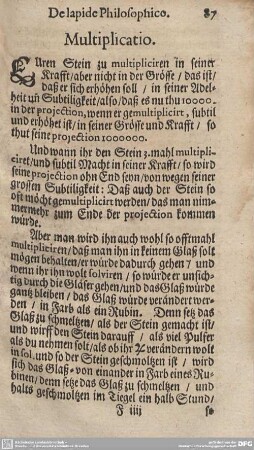 De lapide Philosophico. 87
Multiplicatio.
EUren Stein zu multipliciren in seiner
Krafft/aber nicht in der Grösse / das ist/
daß er sich erhöhen soll / in seiner Adel-
heit uñ Subtiligkeit/also/daß es nu thu 10000.
in der projection, wenn er gemultiplicirt, subtil
und erhöhet ist/ in seiner Grösse und Krafft / so
thut seine projection 1000000.
Und wann ihr den Stein 3. mahl multipli-
ciret/und subtil Macht in seiner Krafft/ so wird
seine projection ohn End seyn/von wegen seiner
grossen Subtiligkeit: Daß auch der Stein so
oft möcht gemultiplicirt werden/ das man nim-
mermehr zum Ende der projection kommen
würde.
Aber man wird ihn auch wohl so offtmahl
multipliciren/daß man ihn in keinem Glaß solt
mögen behalten/er würde dadurch gehen 7 und
wenn ihr ihn wolt solviren / so würde er unsich-
tig durch die Gläser gehen/und das Glaß würde
gantz bleiben / das Glaß würde verändert wer-
den / in Farb als ein Rubin. Denn setz das
Glaß zu schmeltzen/ als der Stein gemacht ist/
und wirff den Stein darauff / als viel Pulfer
als du nehmen solt/als ob ihr ♃ verändern wolt
in sol, und so der Stein geschmoltzen ist / wird
sich das Glaß von einander in Farb eines Ru-
binen/ denn setze das Glaß zu schmeltzen / und
halts geschmoltzen im Tiegel ein halb Stund/
F iiij so